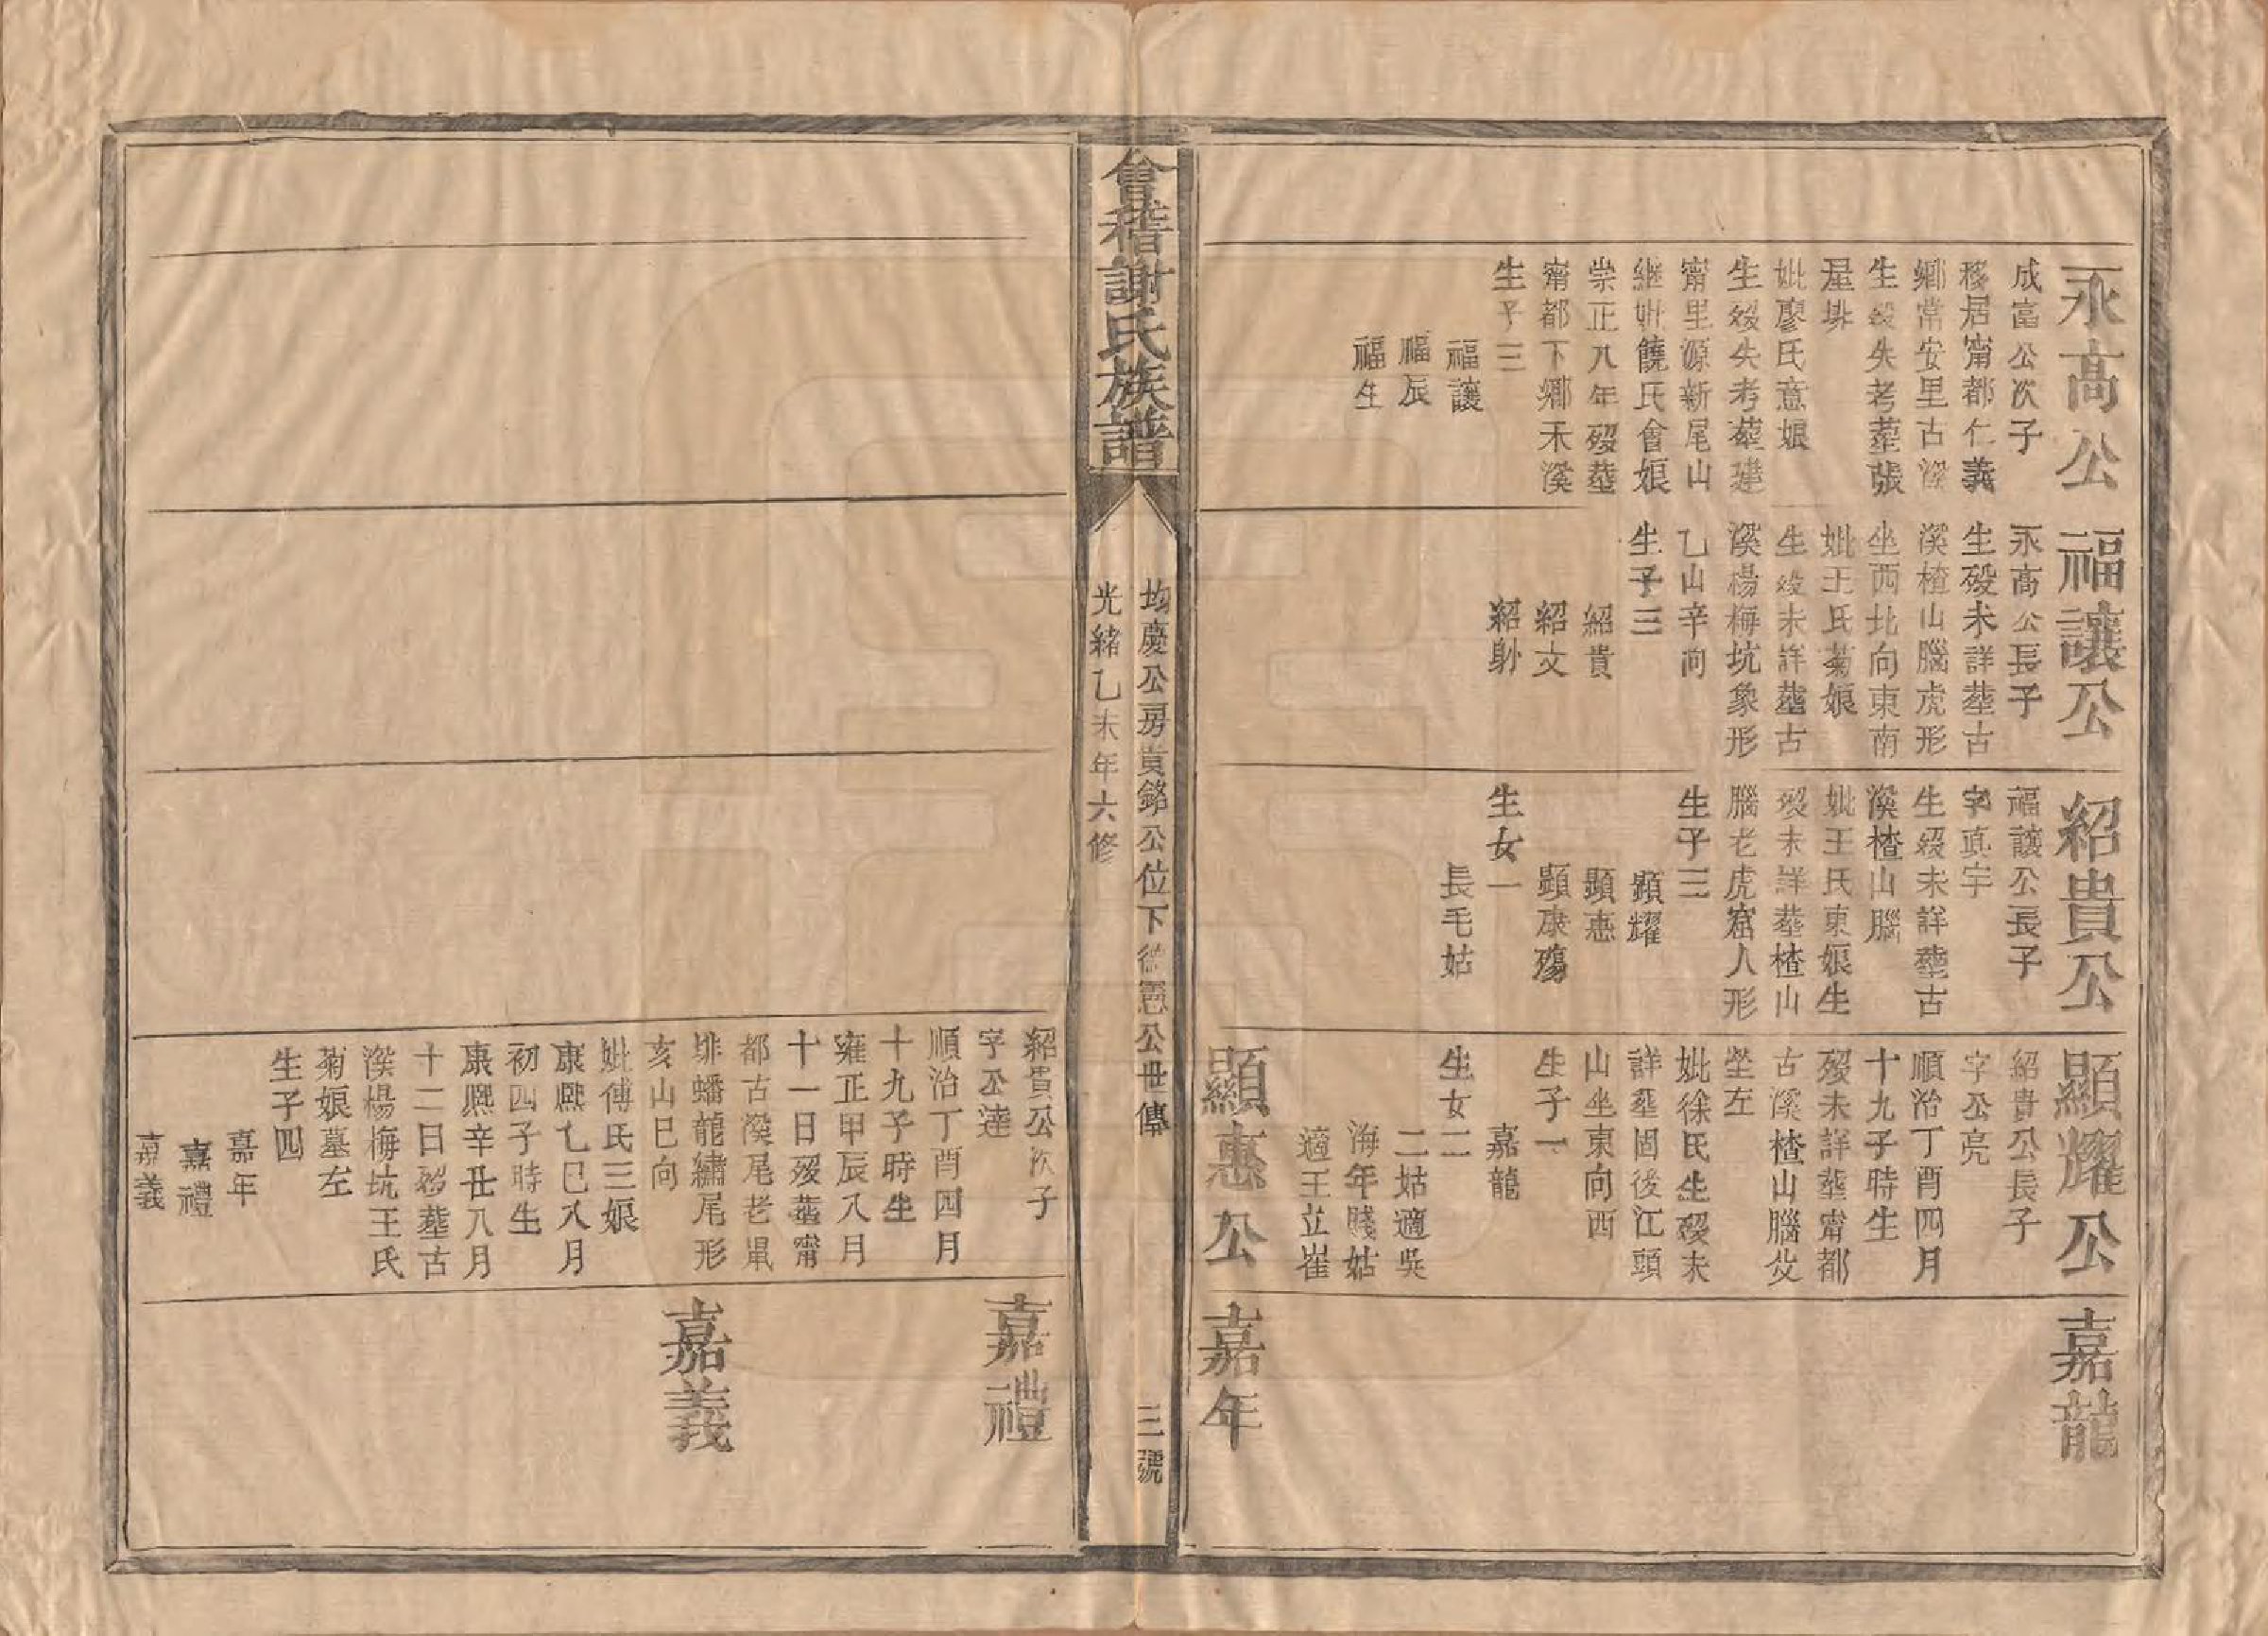 永高公
成富公次子
移居甯都仁義
鄉常安里古溪
生殁失考葬張
屋排
妣廖氏意娘
生殁失考葬建
甯里源新尾山
繼妣饒氏會娘
崇正八年殁葬
甯都下鄉禾溪
生子三
福讓
福辰
福生
福讓公
永高公長子
生殁未詳葬古
溪楂山腦虎形
坐西北向東南
妣王氏菊娘
生殁未詳葬古
溪楊梅坑象形
乙山辛向
生子三
紹貴
紹文
紹躬
紹貴公
福讓公長子
字真宇
生殁未詳葬古
溪楂山腦
妣王氏東娘生
殁未詳葬楂山
腦老虎窟人形
生子三
顯耀
顯惠
顯康殤
生女一
長毛姑
顯耀公
紹貴公長子
字公亮
順治丁酉四月
十九子時生
殁未詳葬甯都
古溪楂山腦父
塋左
妣徐氏生殁未
詳葬固後江頭
山坐東向西
生子一
嘉龍
生女二
二姑適吳
海年賤姑
適王立崔
嘉龍
顯惠公
嘉年
會稽謝氏族譜
均慶公房貴銘公位下德憲公世傳
三號
光緒乙未年六修
紹貴公次子
字公達
順治丁酉四月
十九子時生
雍正甲辰八月
十一日殁葬甯
都古溪尾老鼠
排蟠龍繡尾形
亥山巳向
妣傅氏三娘
康熙乙巳八月
初四子時生
康熙辛丑八月
十二日殁葬古
溪楊梅坑王氏
菊娘墓左
生子四
嘉年
嘉禮
嘉義
嘉禮
嘉義